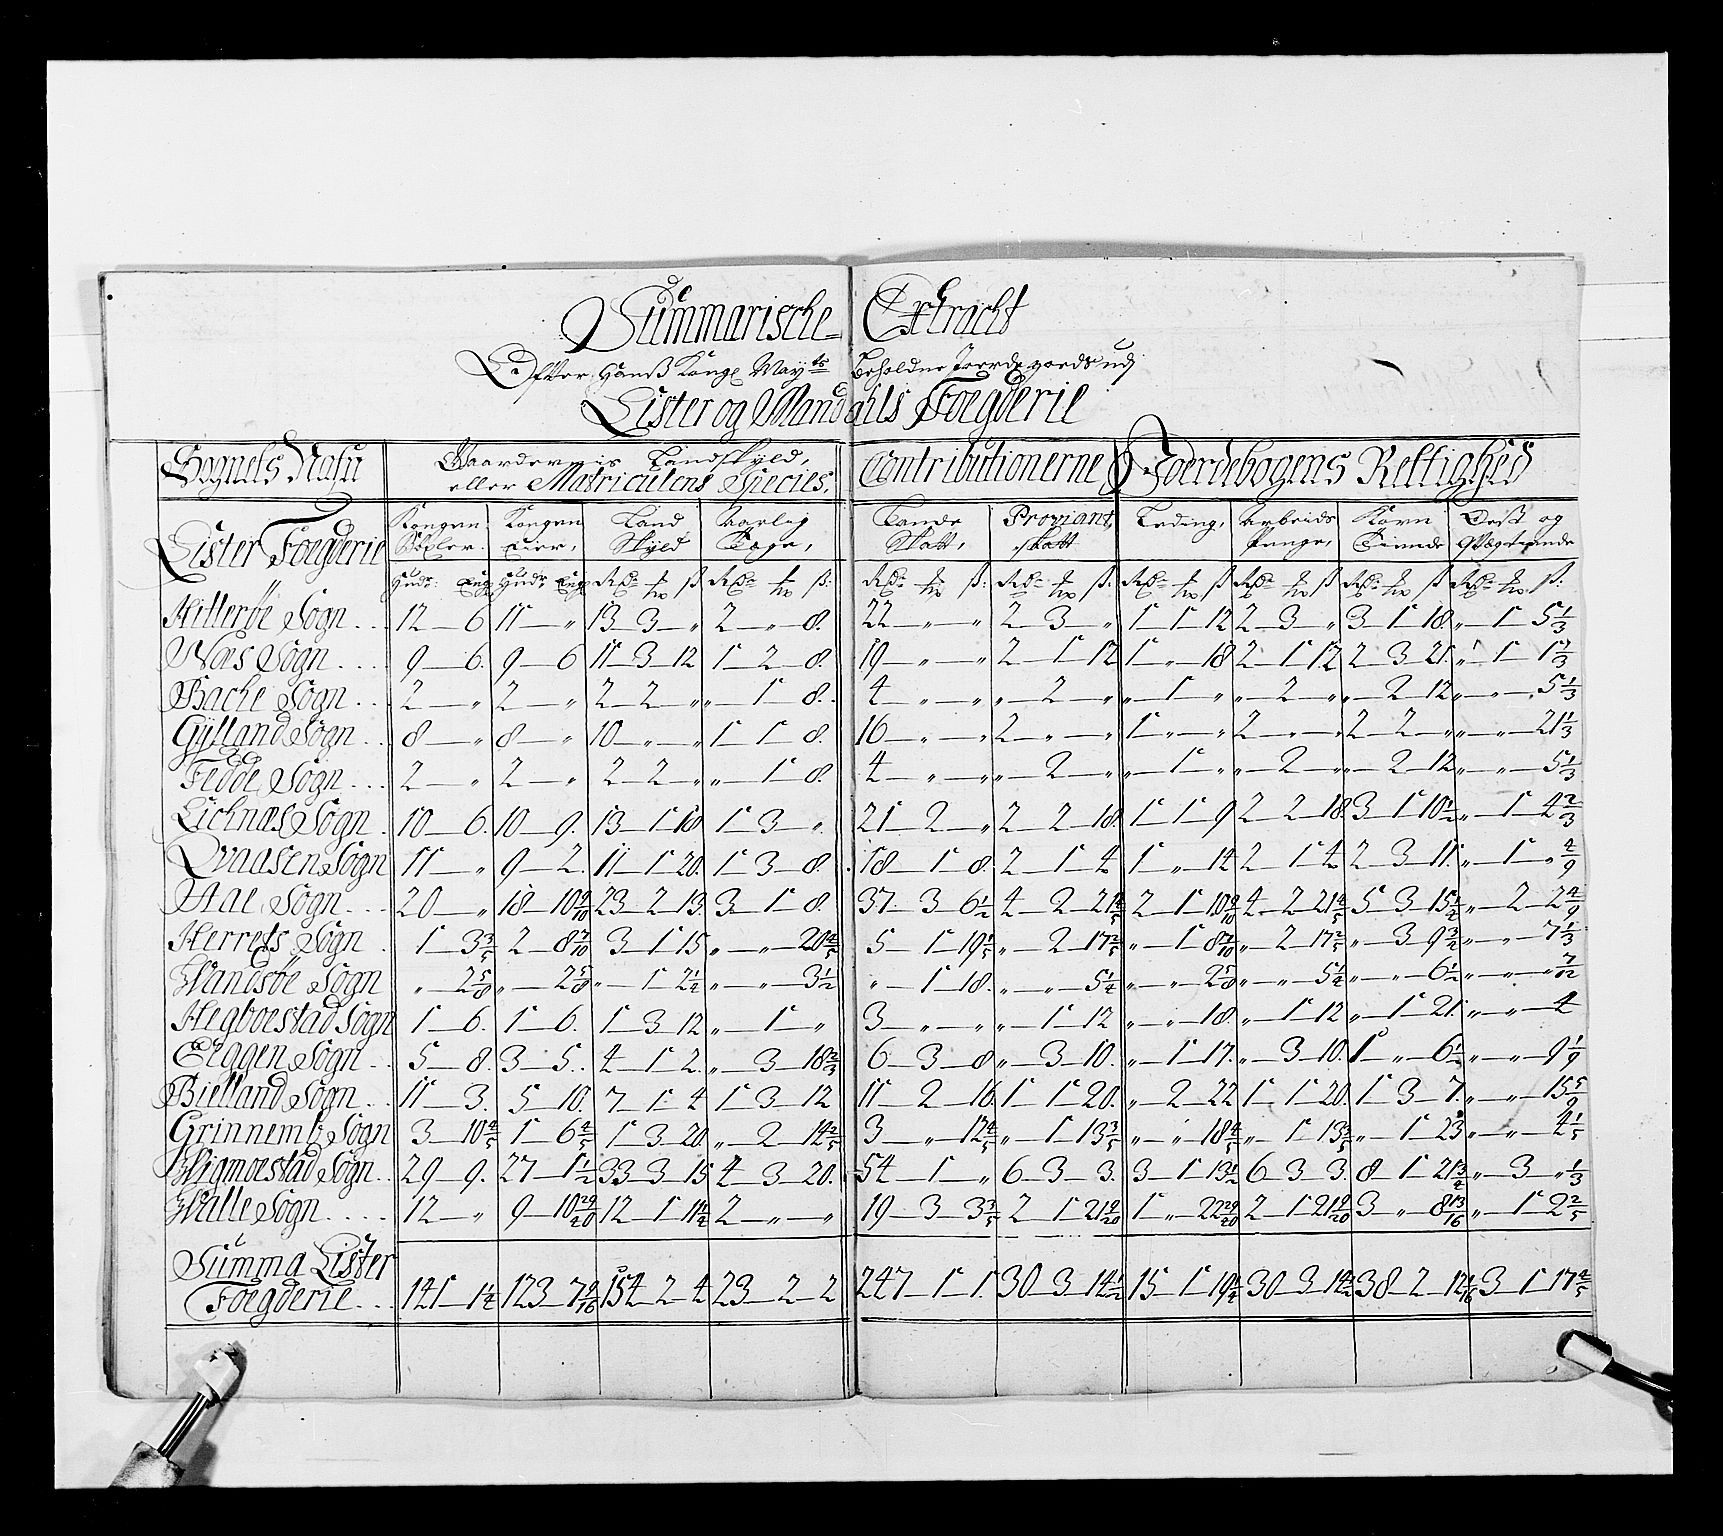 Summarische Extracht
Efter Hanß Kongl May^ts Beholdne Joerdegoeds udj
Lister og Mandahls Foegderie
Sognets Nafn Gaardernis Landskyld, Contributionerne Joerdebogens Rettighed
eller Matriculens Species,
Lister Foegderie Kongen Bøxler. Kongen Eier, Land Skyld Aarlig Tage, Lande Skatt, Proviant skatt Leding, Arbeids Penge, Korn Tiende Oest og Qvægtiende
Hitterøe Sogn . . 12 — 6 11 — „ 13 — 3 — „ 2 — „ — 8. 22 — „ — „ 2 — 3 — „ 1 — 1 — 12 2 — 3 — „ 3 — 1 — 18 „ — 1 — 5 1/3
Næs Sogn . . . . 9 — 6. 9 — 6 11 — 3 — 12 1 — 2 — 8. 19 — „ — „ 2 — 1 — 12 1 — „ — 18 2 — 1 — 12 2 — 3 — 21. „ — 1 — 1 1/3
Bache Sogn . . . 2 — „ 2 — „ 2 — 2 — „ „ — 1 — 8. 4 — „ — „ „ — 2 — „ „ — 1 — „ „ — 2 — „ „ — 2 — 12 „ — „ — 5 1/3
Gylland Sogn . . . 8 — „ 8 — „ 10 — „ — „ 1 — 1 — 8. 16 — „ — „ 2 — „ — „ 1 — „ — „ 2 — „ — „ 2 — 2 — „ „ — „ — 21 1/3
Fedde Sogn . . . 2 — „ 2 — „ 2 — 2 — „ „ — 1 — 8. 4 — „ — „ „ — 2 — „ „ — 1 — „ „ — 2 — „ „ — 2 — 12 „ — „ — 5 1/3
Lichnæs Sogn . 10 — 6. 10 — 9. 13 — 1 — 18 1 — 3 — „ 21 — 2 — „ 2 — 2 — 18. 1 — 1 — 9 2 — 2 — 18. 3 — 1 — 10 1/2 „ — 1 — 4 2/3
Qvaasen Sogn 11 — „ 9 — 2. 11 — 1 — 20. 1 — 3 — 8. 18 — 1 — 8. 2 — 1 — 4 1 — „ — 14 2 — 1 — 4 2 — 3 — 11. „ — 1 — „ 4/9
Aal Sogn . . . 20 — „ 18 — 10 9/10 23 — 2 — 13. 3 — 1 — 8. 37 — 3 — 6 1/2 4 — 2 — 21 4/5 2 — 1 — 10 9/10 4 — 2 — 21 4/5 5 — 3 — 15 1/4 „ — 2 — 2 4/9
Herrets Sogn . . 1 — 3 3/5 2 — 8 7/10 3 — 1 — 15 „ — „ — 20 4/5 5 — 1 — 19 1/5 „ — 2 — 17 2/5 „ — 1 — 8 7/10 „ — 2 — 17 2/5 „ — 3 — 9 3/4 „ — „ — 7 1/3
Wandsøe Sogn „ — 2 5/8 „ — 2 5/8 „ — 1 — 2 1/4 „ — „ — 3 1/2 „ — 1 — 18. „ — „ — 5 1/4 „ — „ — 2 5/8 „ — „ — 5 1/4 „ — „ — 6 1/2 „ — „ — „ 7/12
Hegboestad Sogn 1 — 6. 1 — 6. 1 — 3 — 12 „ — 1 — „ 3 — „ — „ „ — 1 — 12 „ — „ — 18. „ — 1 — 12 „ — 1 — 21. „ — „ — 4
Eggen Sogn . . 5 — 8. 3 — 5. . 4 — 1 — 2. „ — 3 — 18 2/3 6 — 3 — 8 „ — 3 — 10. „ — 1 — 17. „ — 3 — 10. 1 — „ — 6 1/2 „ — „ — 9 1/9
Bielland Sogn . . 11 — 3. 5 — 10. 7 — 1 — 4 1 — 3 — 12 11 — 2 — 16. 1 — 1 — 20. „ — 2 — 22 1 — 1 — 20. 1 — 3 — 7. „ — „ — 15 5/9
Grinnemb Sogn 3 — 10 4/5 1 — 6 4/5 1 — 3 — 20. „ — 2 — 14 2/5 3 — „ — 12 4/5 „ — 1 — 13 3/5 „ — „ — 18 4/5 „ — 1 — 13 3/5 „ — 1 — 23 „ — „ — 4 1/5
Wigmoestad Sogn . . 29 — 9. 27 — 1 1/2 33 — 3 — 15 4 — 3 — 20. 54 — 1 — „ 6 — 3 — 3. 3 — 1 — 13 1/2 6 — 3 — 3. 8 — 1 — 21 3/4 „ — 3 — „ 1/3
Walle Sogn . . . . 12 — „ 9 — 10 29/40 12 — 1 — 11 1/4 2 — „ — „ 19 — 3 — 3 3/5 2 — 1 — 21 9/20 1 — „ — 22 29/40 2 — 1 — 21 9/20 3 — „ — 8 13/16 „ — 1 — 2 2/5
Summa Lister
Foegderie . . . 141 — 1 1/4 123 — 7 154 — 2 — 4 23 — 2 — 2 247 — 1 — 1. 30 — 3 — 14 1/2 15 — 1 — 19 1/4 30 — 3 — 14 1/2 38 — 2 — 12 3 — 1 — 17 2/5